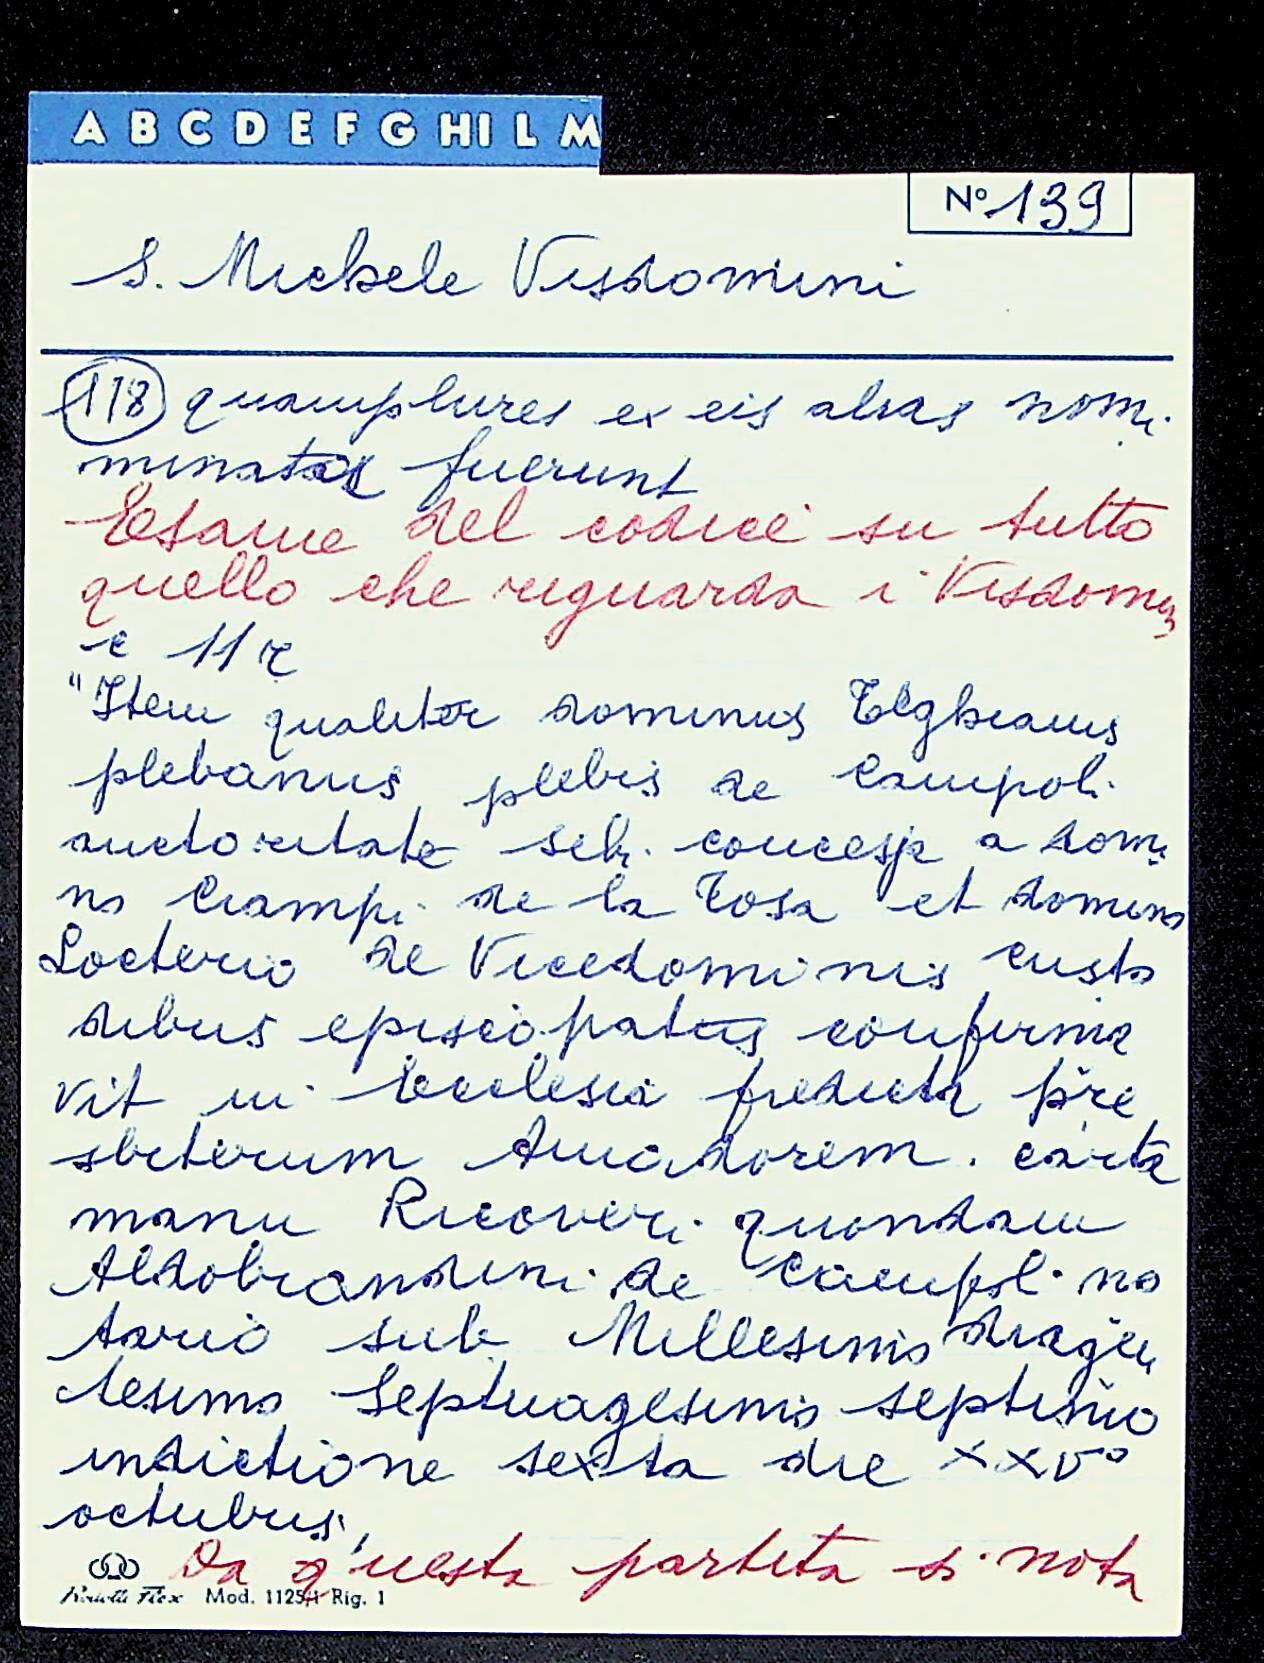 A B C D E F G HI L M
Nº 139
S. Michele Visdomini
118 quamplures ex eis alias nomi
minatas fuerunt
Esame del codice su tutto
quello che riguarda i Visdomini
c 11 r
"Item qualiter dominus Teghiaius
plebanus plebis de Empoli
auctoritate sibi concessa a domi
no Ciampi de la Tosa et domino
Locterio de Vicedominis custo
dibus episcopatus confirma
vit in Ecclesia predicta pre
sbiterum Amadorem. carta
manu Ricoveri quondam
Aldobrandini de Empoli no
tario sub Millesimo ducen
tesimo Septuagesimo septimo
indictione sexta die XXVº
octubris,
Da questa partita si nota
Mod. 1125/1 Rig. 1